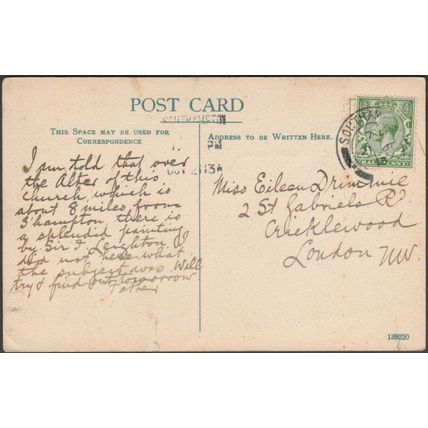 POST CARD
SOUTHAMPTON
THIS SPACE MAY BE USED FOR
CORRESPONDENCE
ADDRESS TO BE WRITTEN HERE.
OCT 21 13
I am told that over
the Alter of this
Church which is
about 8 miles from
S'hampton there is
a splendid painting
by Sir F. Leighton I
did not hear what
the subject was Will
try & find out tomorrow
Father
Miss Eileen Drimmie
2 St Gabriels Rd
Cricklewood
London NW.
HALFPENNY
139220